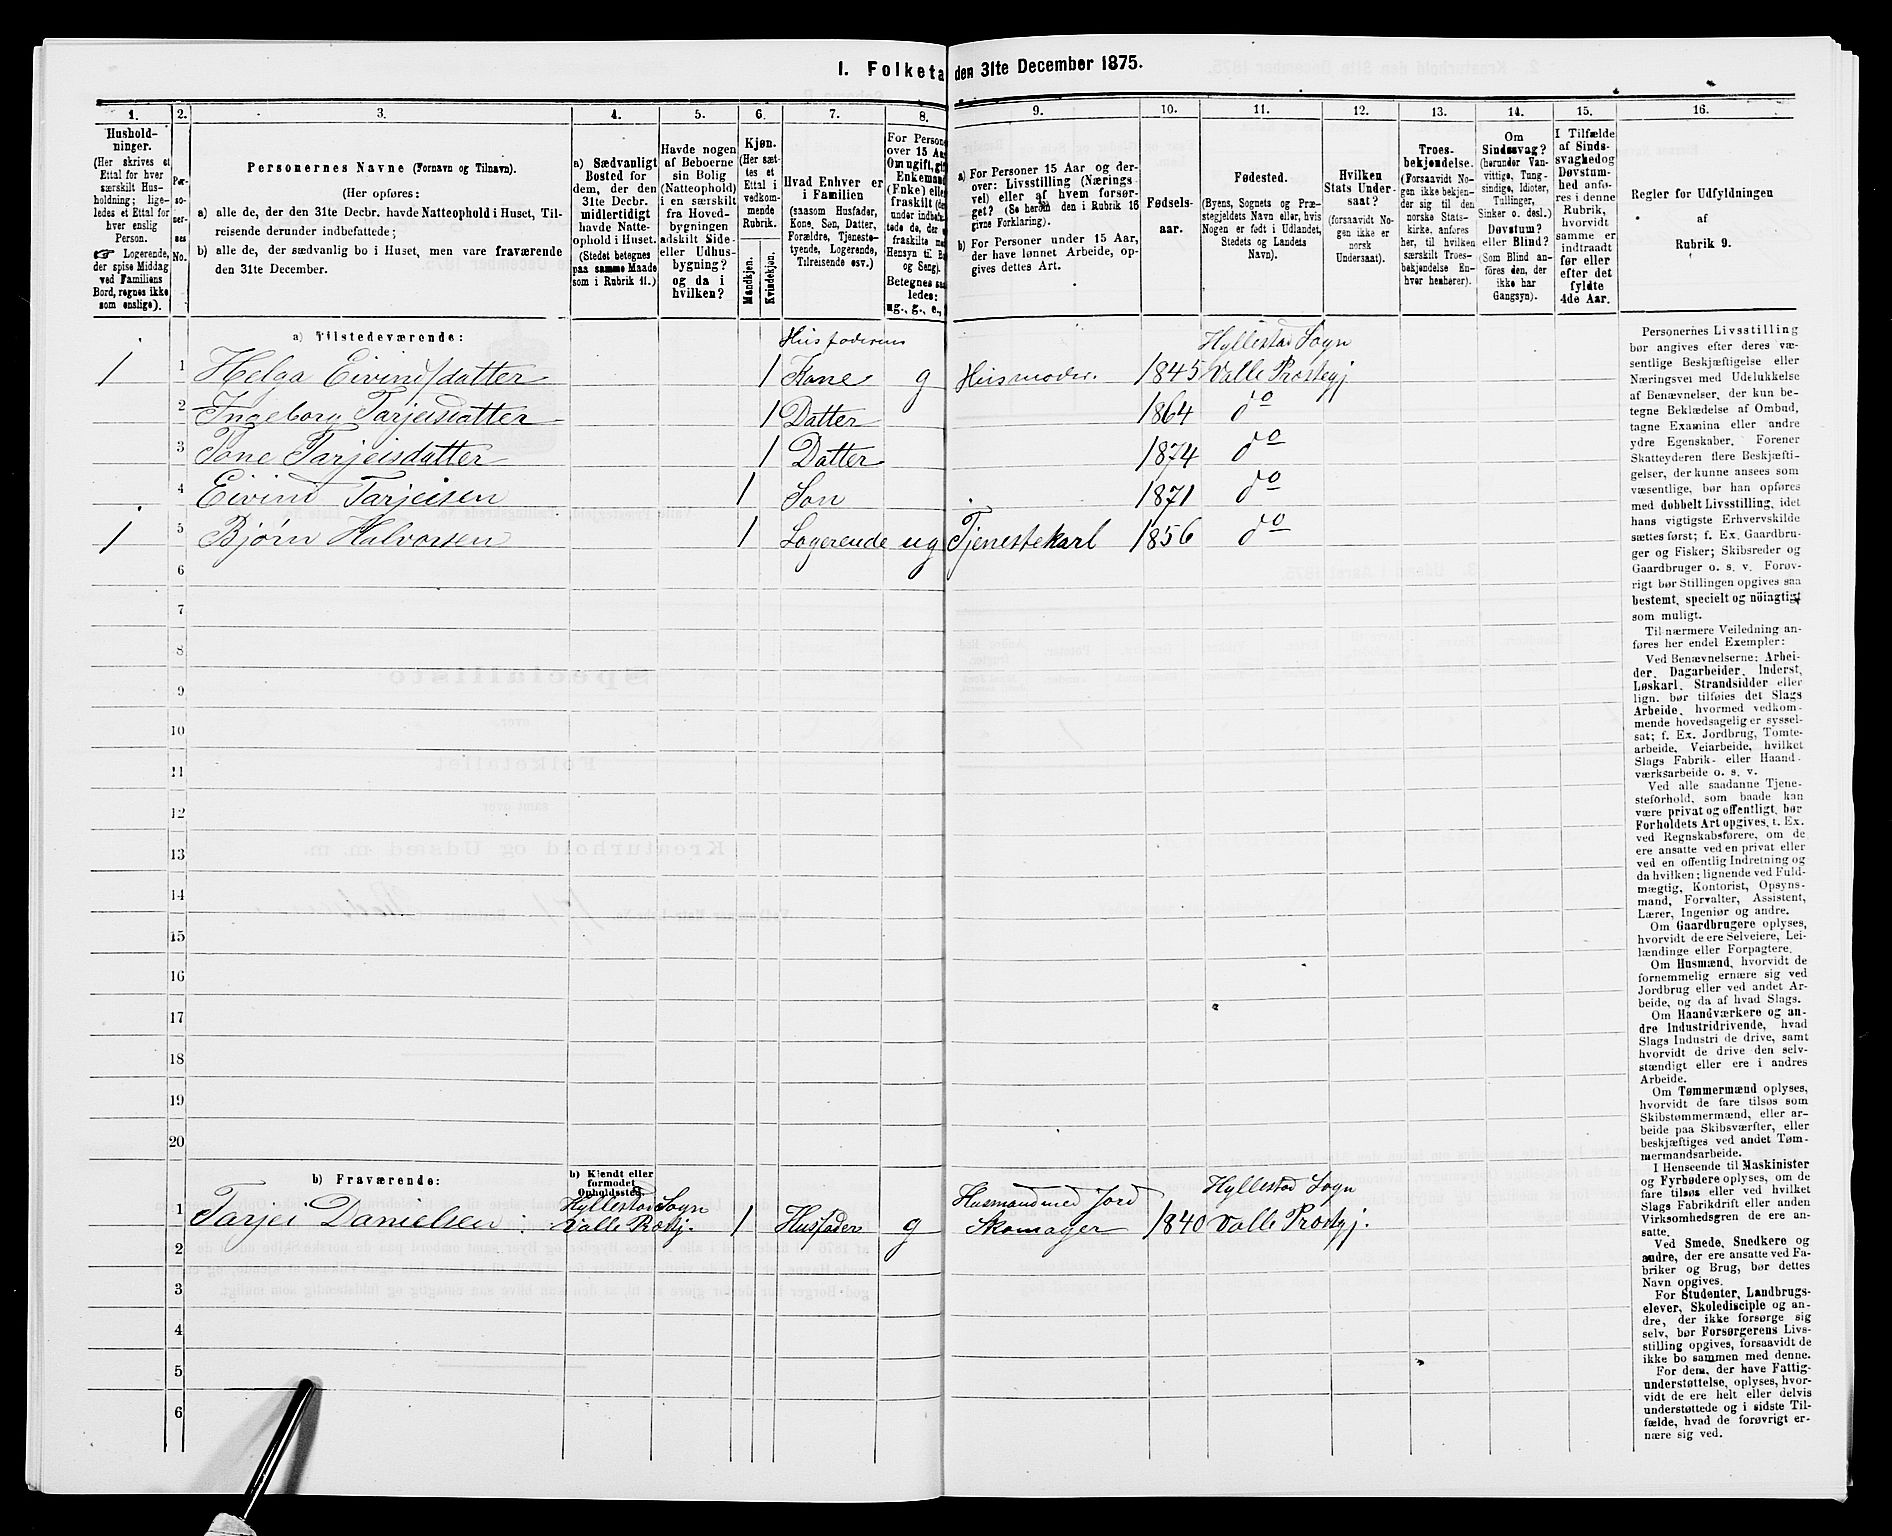 I. Folketal den 31te December 1875.
1.
Hushold-
ninger.
(Her skrives et
Ettal for hver
særskilt Hus-
holdning; lige-
ledes et Ettal for
hver enslig
Person.
☞ Logerende,
der spise Middag
ved Familiens
Bord, regnes ikke
som enslige).
2.
Per-
so-
ner-
nes
No.
3.
Personernes Navne (Fornavn og Tilnavn).
(Her opføres:
a) alle de, der den 31te Decbr. havde Natteophold i Huset, Til-
reisende derunder indbefattede;
b) alle de, der sædvanlig bo i Huset, men vare fraværende
den 31te December.
4.
a) Sædvanligt
Bosted for
dem, der den
31te Decbr.
midlertidigt
havde Natte-
ophold i Huset.
(Stedet betegnes
paa samme Maade
som i Rubrik 11.)
5.
Havde nogen
af Beboerne
sin Bolig
(Natteophold)
i en særskilt
fra Hoved-
bygningen
adskilt Side-
eller Udhus-
bygning?
og da i
hvilken?
6.
Kjøn.
(Her sæt-
tes et
Ettal i
vedkom-
mende
Rubrik.
Mandkjøn.
Kvindekjøn.
7.
Hvad Enhver er
i Familien
(saasom Husfader,
Kone, Søn, Datter,
Forældre, Tjeneste-
tyende, Logerende,
Tilreisende osv.)
8.
For Persone
over 15 Aa
Om ugift, gif
Enkemand
(Fnke) elle
fraskilt (de
under indbe
tede de, der
fraskilte me
Hensyn til B
og Seng).
Betegnes saa
ledes:
ug., g., e.,
9.
a) For Personer 15 Aar og der-
over: Livsstilling (Nærings
vei) eller af hvem forsør-
get? (Se herom den i Rubrik 16
givne Forklaring).
b) For Personer under 15 Aar,
der have lønnet Arbeide, op-
gives dettes Art.
10.
Fødsels-
aar.
11.
Fødested.
(Byens, Sognets og Præ-
stegjeldets Navn eller, hvis
Nogen er født i Udlandet,
Stedets og Landets
Navn).
12.
Hvilken
Stats Under-
saat?
(forsaavidt No-
gen ikke er
norsk
Undersaat).
13.
Troes-
bekjendelse.
(Forsaavidt No-
gen ikke bekjen-
der sig til den
norske Stats-
kirke, anføres
her, til hvilken
særskilt Troes-
bekjendelse En-
hver henhører).
14.
Om
Sindssvag?
(herunder Van-
vittige, Tung-
sindige, Idioter,
Sinker o. desl.)
Døvstum?
eller Blind?
(Som Blind an-
føres den, der
ikke har
Gangsyn).
15.
I Tilfælde
af Sinds-
svaghed og
Døvstum-
hed anfø-
res i denne
Rubrik,
hvorvidt
samme er
indtraadt
før eller
efter det
fyldte
4de Aar.
16.
Regler for Udfyldningen
af
Rubrik 9.
a) Tilstedeværende:
Husfaderens Hyllestad Sogn
1 1 Helga Eivindsdatter 1 Kone g Husmoder. 1845 Valle Præstegj
2 Ingeborg Tarjeisdatter 1 Datter 1864 do
3 Tone Tarjeisdatter 1 Datter 1874 do
4 Eivind Tarjeisen 1 Søn 1871 do
1 5 Bjørn Halvorsen 1 Logerende ug Tjenestekarl 1856 do
6
7
8
9
10
11
12
13
14
15
16
17
18
19
20
b) Fraværende:
b) Kjendt eller
formodet
Opholdssted.
Hyllestad Sogn Husmand med Jord Hyllestad Sogn
1 Tarjei Danielsen. Valle Præstgj. 1 Husfader g Skomager 1840 Valle Præstgj.
2
3
4
5
6
Personernes Livsstilling
bør angives efter deres væ-
sentlige Beskjæftigelse eller
Næringsvei med Udelukkelse
af Benævnelser, der kun be-
tegne Beklædelse af Ombud,
tagne Examina eller andre
ydre Egenskaber. Forener
Skatteyderen flere Beskjæfti-
gelser, der kunne ansees som
væsentlige, bør han opføres
med dobbelt Livsstilling, idet
hans vigtigste Erhvervskilde
sættes først; f. Ex. Gaardbru-
ger og Fisker; Skibsreder og
Gaardbruger o. s. v. Forøv-
rigt bør Stillingen opgives saa
bestemt, specielt og nöiagtigt
som muligt.
Til nærmere Veiledning an-
føres her endel Exempler:
Ved Benævnelserne: Arbei-
der, Dagarbeider, Inderst,
Løskarl, Strandsidder eller
lign. bør tilføies det Slags
Arbeide, hvormed vedkom-
mende hovedsagelig er syssel-
sat; f. Ex. Jordbrug, Tomte-
arbeide, Veiarbeide, hvilket
Slags Fabrik- eller Haand-
værksarbeide o. s. v.
Ved alle saadanne Tjene-
steforhold, som baade kan
være privat og offentligt, bør
Forholdets Art opgives, t. Ex.
ved Regnskabsførere, om de
ere ansatte ved en privat eller
ved en offentlig Indretning og
da hvilken; lignende ved Fuld-
mægtig, Kontorist, Opsyns-
mand, Forvalter, Assistent,
Lærer, Ingeniør og andre.
Om Gaardbrugere oplyses,
hvorvidt de ere Selveiere, Lei-
lændinge eller Forpagtere.
Om Husmænd, hvorvidt de
fornemmelig ernære sig ved
Jordbrug eller ved andet Ar-
beide, og da af hvad Slags.
Om Haandværkere og an-
dre Industridrivende, hvad
Slags Industri de drive, samt
hvorvidt de drive den selv-
stændigt eller ere i andres
Arbeide.
Om Tømmermænd oplyses,
hvorvidt de fare tilsøs som
Skibstømmermænd, eller ar-
beide paa Skibsværfter, eller
beskjæftiges ved andet Tøm-
mermandsarbeide.
I Henseende til Maskinister
og Fyrbødere oplyses, om de
fare tilsøs eller ved hvilket
Slags Fabrikdrift eller anden
Virksomhedsgren de ere an-
satte.
Ved Smede, Snedkere og
andre, der ere ansatte ved Fa-
briker og Brug, bør dettes
Navn opgives.
For Studenter, Landbrugs-
elever, Skoledisciple og an-
dre, der ikke forsørge sig
selv, bør Forsørgerens Livs-
stilling opgives, forsaavidt de
ikke bo sammen med denne.
For dem, der have Fattig-
understøttelse, oplyses, hvor-
vidt de ere helt eller delvis
understøttede og i sidste Til-
fælde, hvad de forøvrigt er-
nære sig ved.